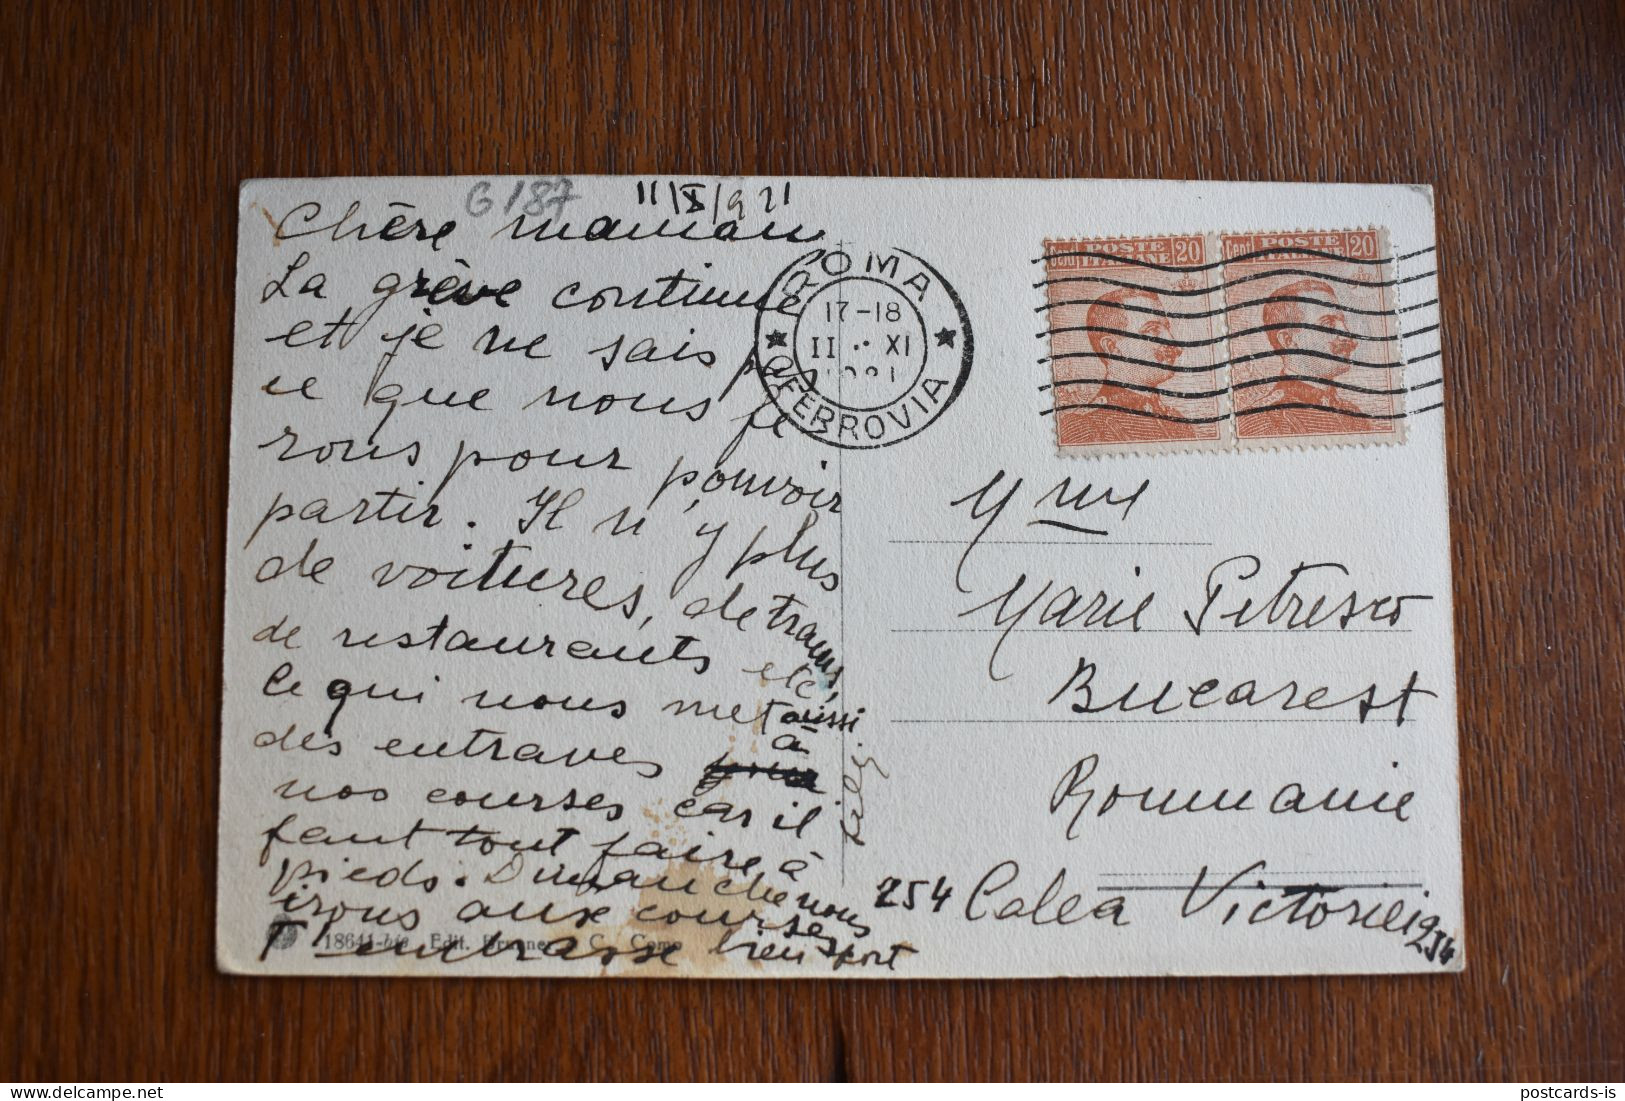 G 187
11/X/921
Chère maman
La grève continue
et je ne sais pas
ce que nous fe
rons pour pouvoir
partir. Il n'y plus
de voitures, de trams,
de restaurants etc
Ce qui nous met aussi
des entraves à
nos courses car il
faut tout faire à
pieds. Dimanche nous
irons aux courses
T'embrasse bien fort
ROMA
17-18
11 XI
1921
FERROVIA
Cent POSTE ITALIANE 20
Cent POSTE ITALIANE 20
Mme
Marie Petresco
Bucarest
Roumanie
254 Calea Victoriei 254
18641-bis Edit. Brunner & C., Como
postcards-is